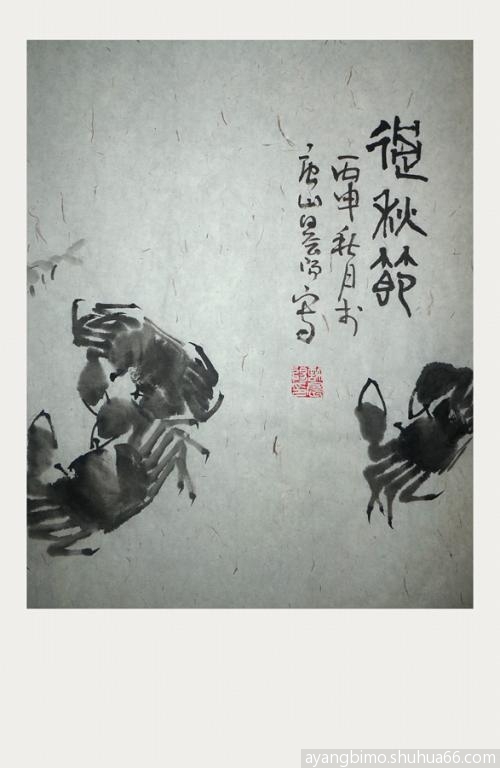 秋節
丙申秋月於
唐山 寫
ayangbimo.shuhua66.com